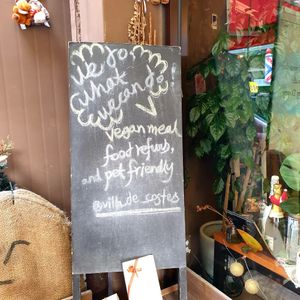 we do
what
vegan do!
Vegan meal
food refuse,
and pet friendly
@villa de costes